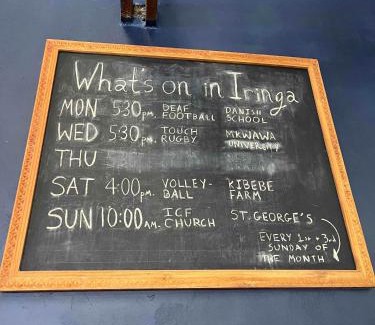 What's on in Iringa
MON 5:30 pm. DEAF FOOTBALL DANISH SCHOOL
WED 5:30 pm. TOUCH RUGBY MKWAWA UNIVERSITY
THU
SAT 4:00 pm. VOLLEY-BALL KIBEBE FARM
SUN 10:00 AM. ICF CHURCH ST. GEORGE'S
EVERY 1st + 3rd
SUNDAY OF
THE MONTH